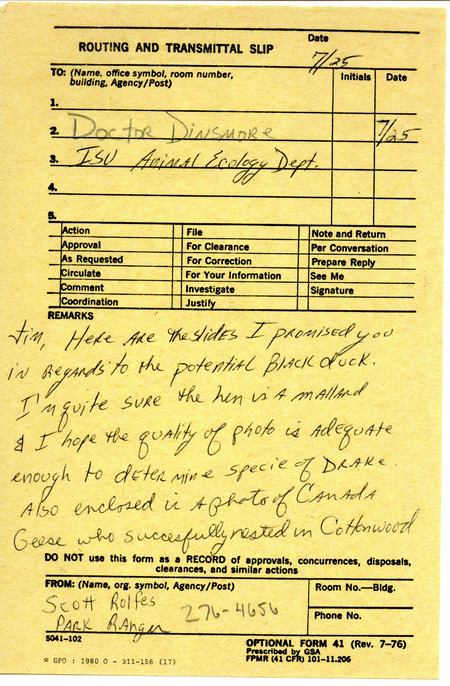 ROUTING AND TRANSMITTAL SLIP
Date
7/25
TO: (Name, office symbol, room number,
building, Agency/Post)
Initials
Date
1.
2. Doctor Dinsmore 7/25
3. ISU Animal Ecology Dept.
4.
5.
Action File Note and Return
Approval For Clearance Per Conversation
As Requested For Correction Prepare Reply
Circulate For Your Information See Me
Comment Investigate Signature
Coordination Justify
REMARKS
Jim, Here are the slides I promised you
in regards to the potential Black duck.
I'm quite sure the hen is a mallard
& I hope the quality of photo is adequate
enough to determine specie of DRAKE.
Also enclosed is a photo of Canada
Geese who succesfully nested in Cottonwood
DO NOT use this form as a RECORD of approvals, concurrences, disposals,
clearances, and similar actions
FROM: (Name, org. symbol, Agency/Post)
Room No.—Bldg.
Scott Rolfes
Park Ranger
276-4656
Phone No.
5041-102
OPTIONAL FORM 41 (Rev. 7-76)
Prescribed by GSA
FPMR (41 CFR) 101-11.206
* GPO : 1980 O - 311-156 (17)